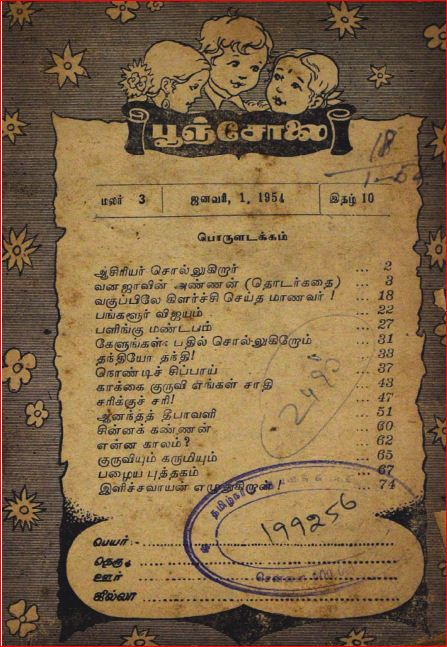 பூஞ்சோலை
18
மலர் 3 ஜனவரி, 1, 1954 இதழ் 10
பொருளடக்கம்
ஆசிரியர் சொல்லுகிறார் ... 2
வனஜாவின் அண்ணன் (தொடர்கதை) ... 3
வகுப்பிலே கிளர்ச்சி செய்த மாணவர்! ... 18
பங்களூர் விஜயம் ... 22
பளிங்கு மண்டபம் ... 27
கேளுங்கள்: பதில் சொல்லுகிறோம் ... 31
தந்தியோ தந்தி! ... 33
நொண்டிச் சிப்பாய் ... 37
காக்கை குருவி எங்கள் சாதி ... 43
சரிக்குச் சரி! ... 47
ஆனந்தத் தீபாவளி ... 51
சின்னக் கண்ணன் ... 60
என்ன காலம்? ... 62
குருவியும் கருமியும் ... 65
பழைய புத்தகம் ... 67
இளிச்சவாயன் எழுதுகிறான் ... 74
2495
199256
பெயர்
தெரு
ஊர்
சென்னை
ஜில்லா